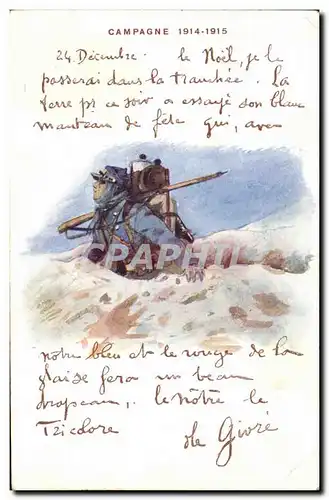 CAMPAGNE 1914-1915
24 Décembre. le Noël, je le
passerai dans la tranchée. La
terre ce soir a essayé son blanc
manteau de fête qui, avec
CPAPHIL
notre bleu et le rouge de la
glaise fera un beau
drapeau, le nôtre le
Tricolore
de Givré